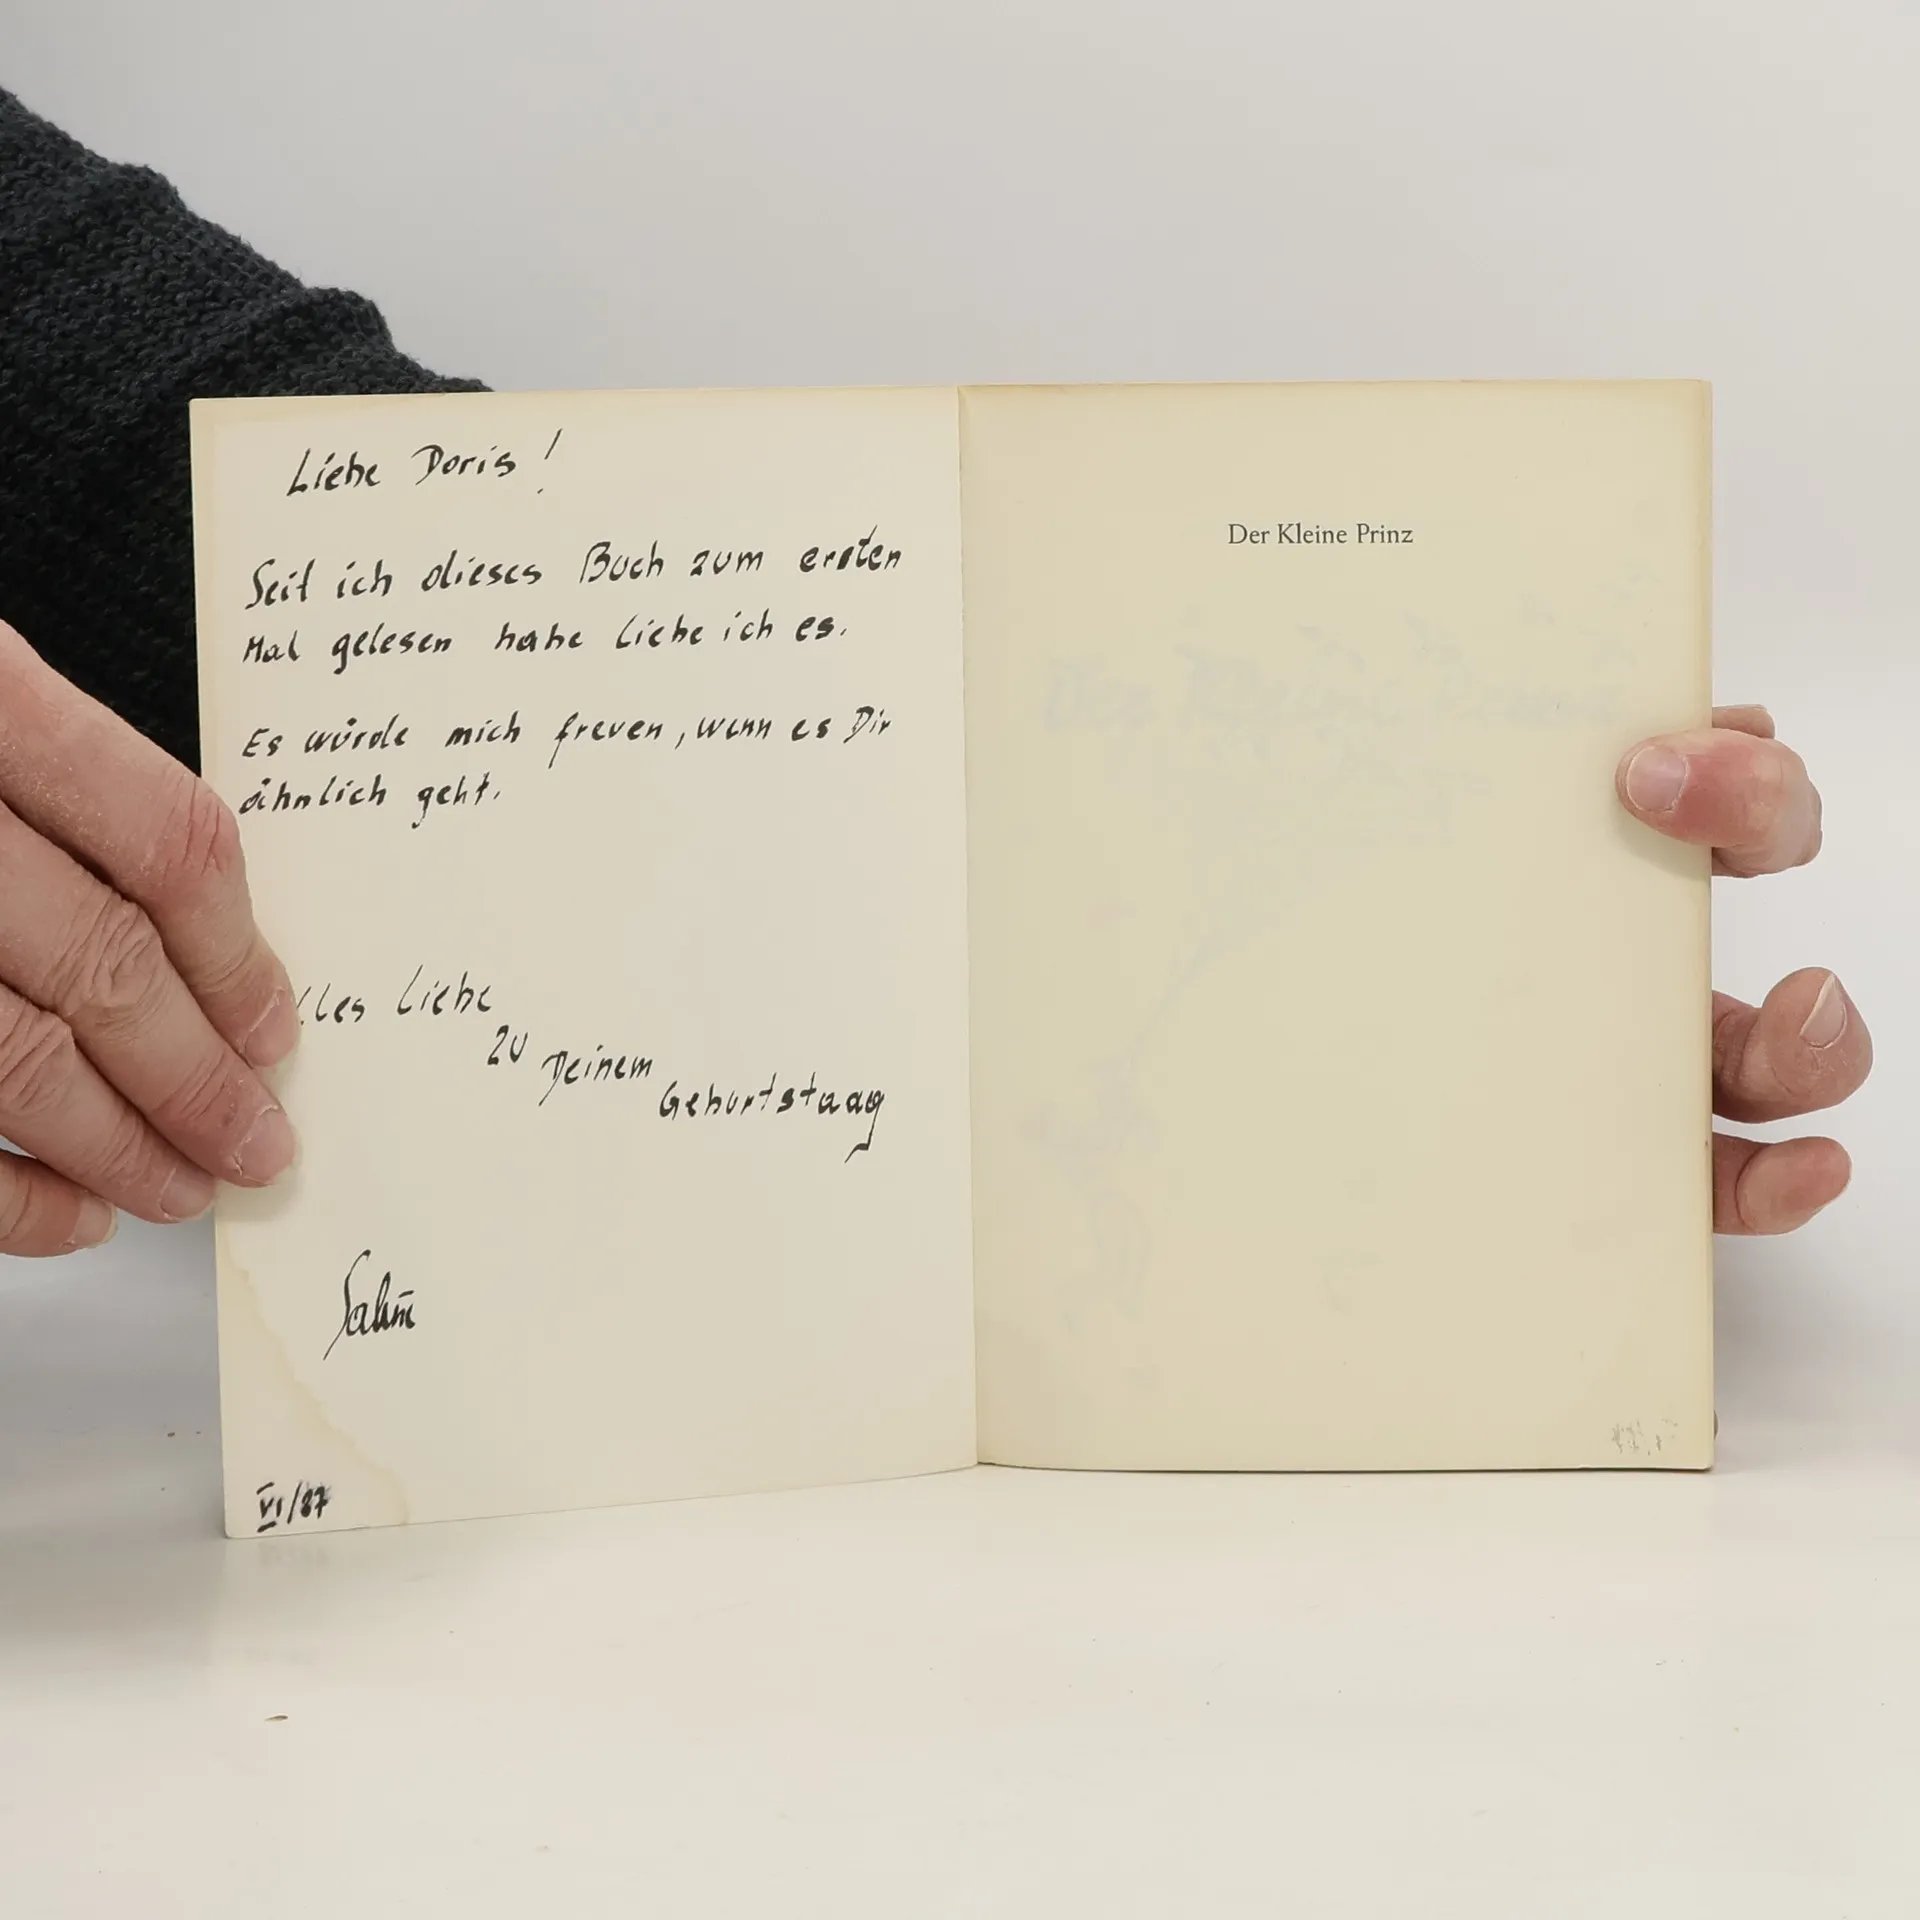 Liebe Doris!
Seit ich dieses Buch zum ersten
Mal gelesen habe liebe ich es.
Es würde mich freuen, wenn es Dir
ähnlich geht.
lles Liebe
zu Deinem
Geburtstaag
VI/87
Der Kleine Prinz